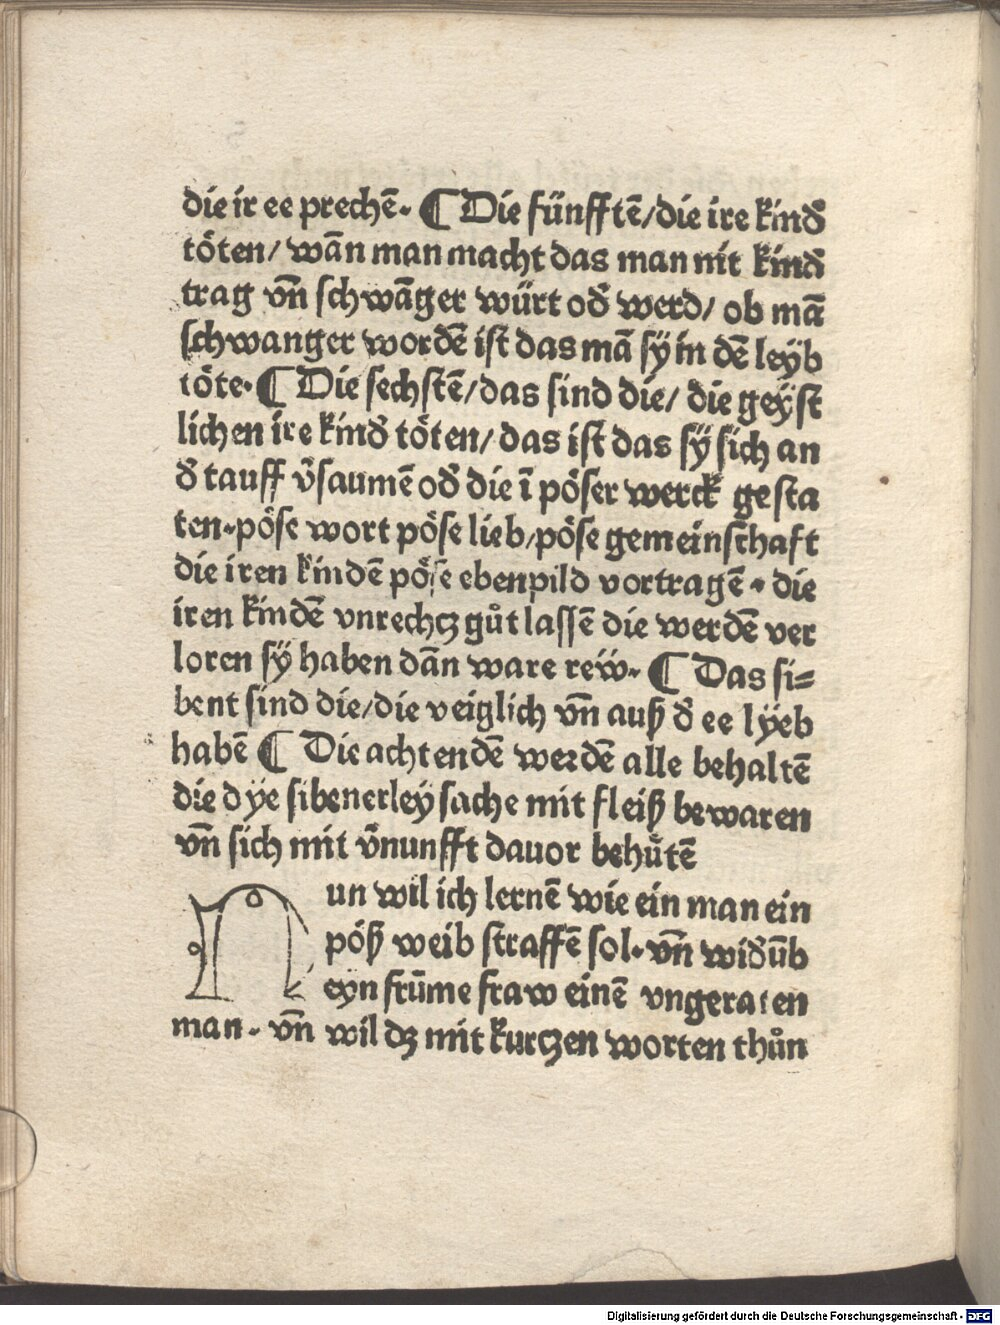 die ir ee prechē. ¶ Die fünfftē/die ire kind̄
töten/ wān man macht das man nit kind̄
trag vn̄ schwāger würt od̄ werd/ ob mā
schwanger wordē ist das mā sÿ in dē leÿb
töte. ¶ Die sechstē/das sind die/ die geÿst
lichen ire kind̄ töten/ das ist das sÿ sich an
d̄ tauff v̄saumē od̄ die ī pöser werck gesta
ten.pöse wort pöse lieb/pöse gemeinschaft
die iren kindē pöse ebenpild vortragē. die
iren kindē vnrechtz gůt lassē die werdē ver
loren sÿ haben dān ware reẅ. ¶ Das si=
bent sind die/die veiglich vn̄ auß d̄ ee lÿeb
habē ¶ Die achtendē werdē alle behaltē
die dÿe sibenerleÿ sache mit fleiß bewaren
vn̄ sich mit v̄nunfft dauor behůtē
Nun wil ich lernē wie ein man ein
pöß weib straffē sol. vn̄ wid̄ūb
eyn frūme fraw einē vngeraten
man. vn̄ wil dz mit kurtzen worten thůn
Digitalisierung gefördert durch die Deutsche Forschungsgemeinschaft - DFG